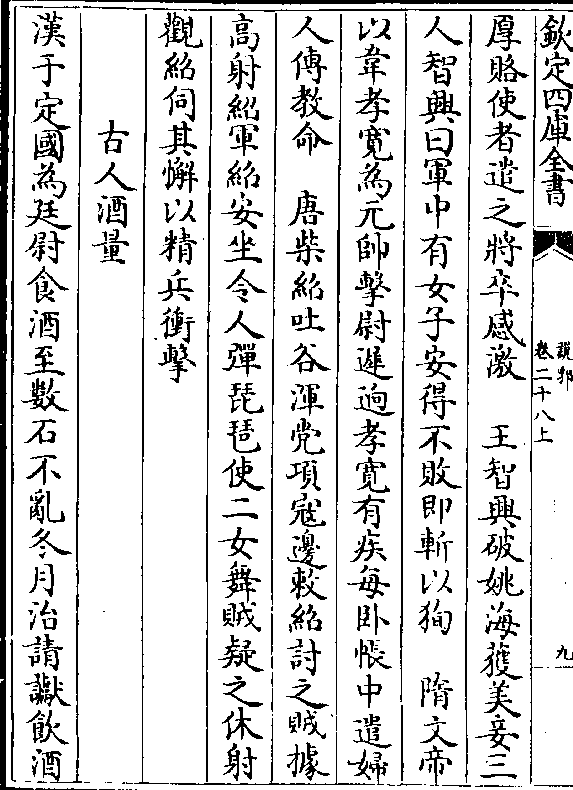 欽定四庫全書
說郛
卷二十八上
九
厚賂使者遣之將卒感激　王智興破姚海獲美妾三
人智興曰軍中有女子安得不敗即斬以狥　隋文帝
以韋孝寛為元帥擊尉遲逈孝寛有疾每卧帳中遣婦
人傳教命　唐柴紹吐谷渾党項寇邊敕紹討之賊據
高射紹軍紹安坐令人彈琵琶使二女舞賊疑之休射
觀紹伺其懈以精兵衝擊
古人酒量
漢于定國為廷尉食酒至數石不亂冬月治請讞飲酒